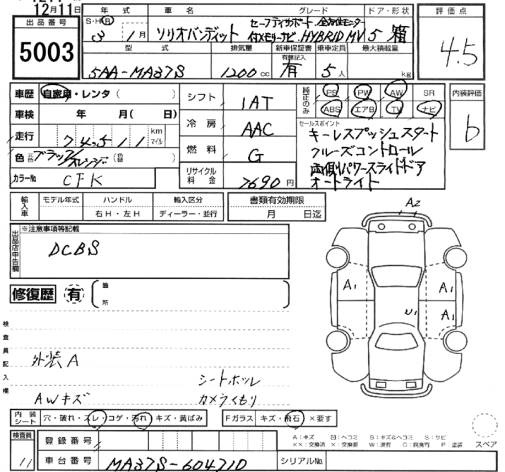 12月1日
出品番号
5003
年式 車名 グレード ドア・形状
S・H・R 3年 1月 ソリオバンディット セーフティサポート 全方位モニター
付メモリーナビ HYBRID MV 5 箱
評価点
4.5
型式 排気量 新車保証書 乗車定員 最大積載量
有 記入
5AA-MA37S 1200cc 有 5人 kg
車歴 自家用・レンタ( )
車検 年 月( )
走行 74,511 km マイル
色 ブラック/オレンジ
カラーNo CFK
シフト 1AT
冷房 AAC
燃料 G
リサイクル料金 7690円
純正のみ
PS PW AW SR
ABS エアB TV ナビ
セールスポイント
キーレスプッシュスタート
クルーズコントロール
両側パワースライドドア
オートライト
内装評価
b
輸入車
モデル年式 ハンドル 輸入区分
右H・左H ディーラー・並行
書類有効期限
月 日迄
出品店申告欄
※注意事項等記載
DCBS
修復歴 有 箇所
A2
A1 A1
U1
A1
検査員記入欄
外装A
AWキズ
シートホツレ
カメラくもり
内装シート 穴・破れ・スレ・コゲ・汚れ キズ・黄ばみ Fガラス キズ・飛石 ×要す
検査員
11
登録番号
車台番号 MA37S-604710
シリアルNo.
A:キズ
スペア